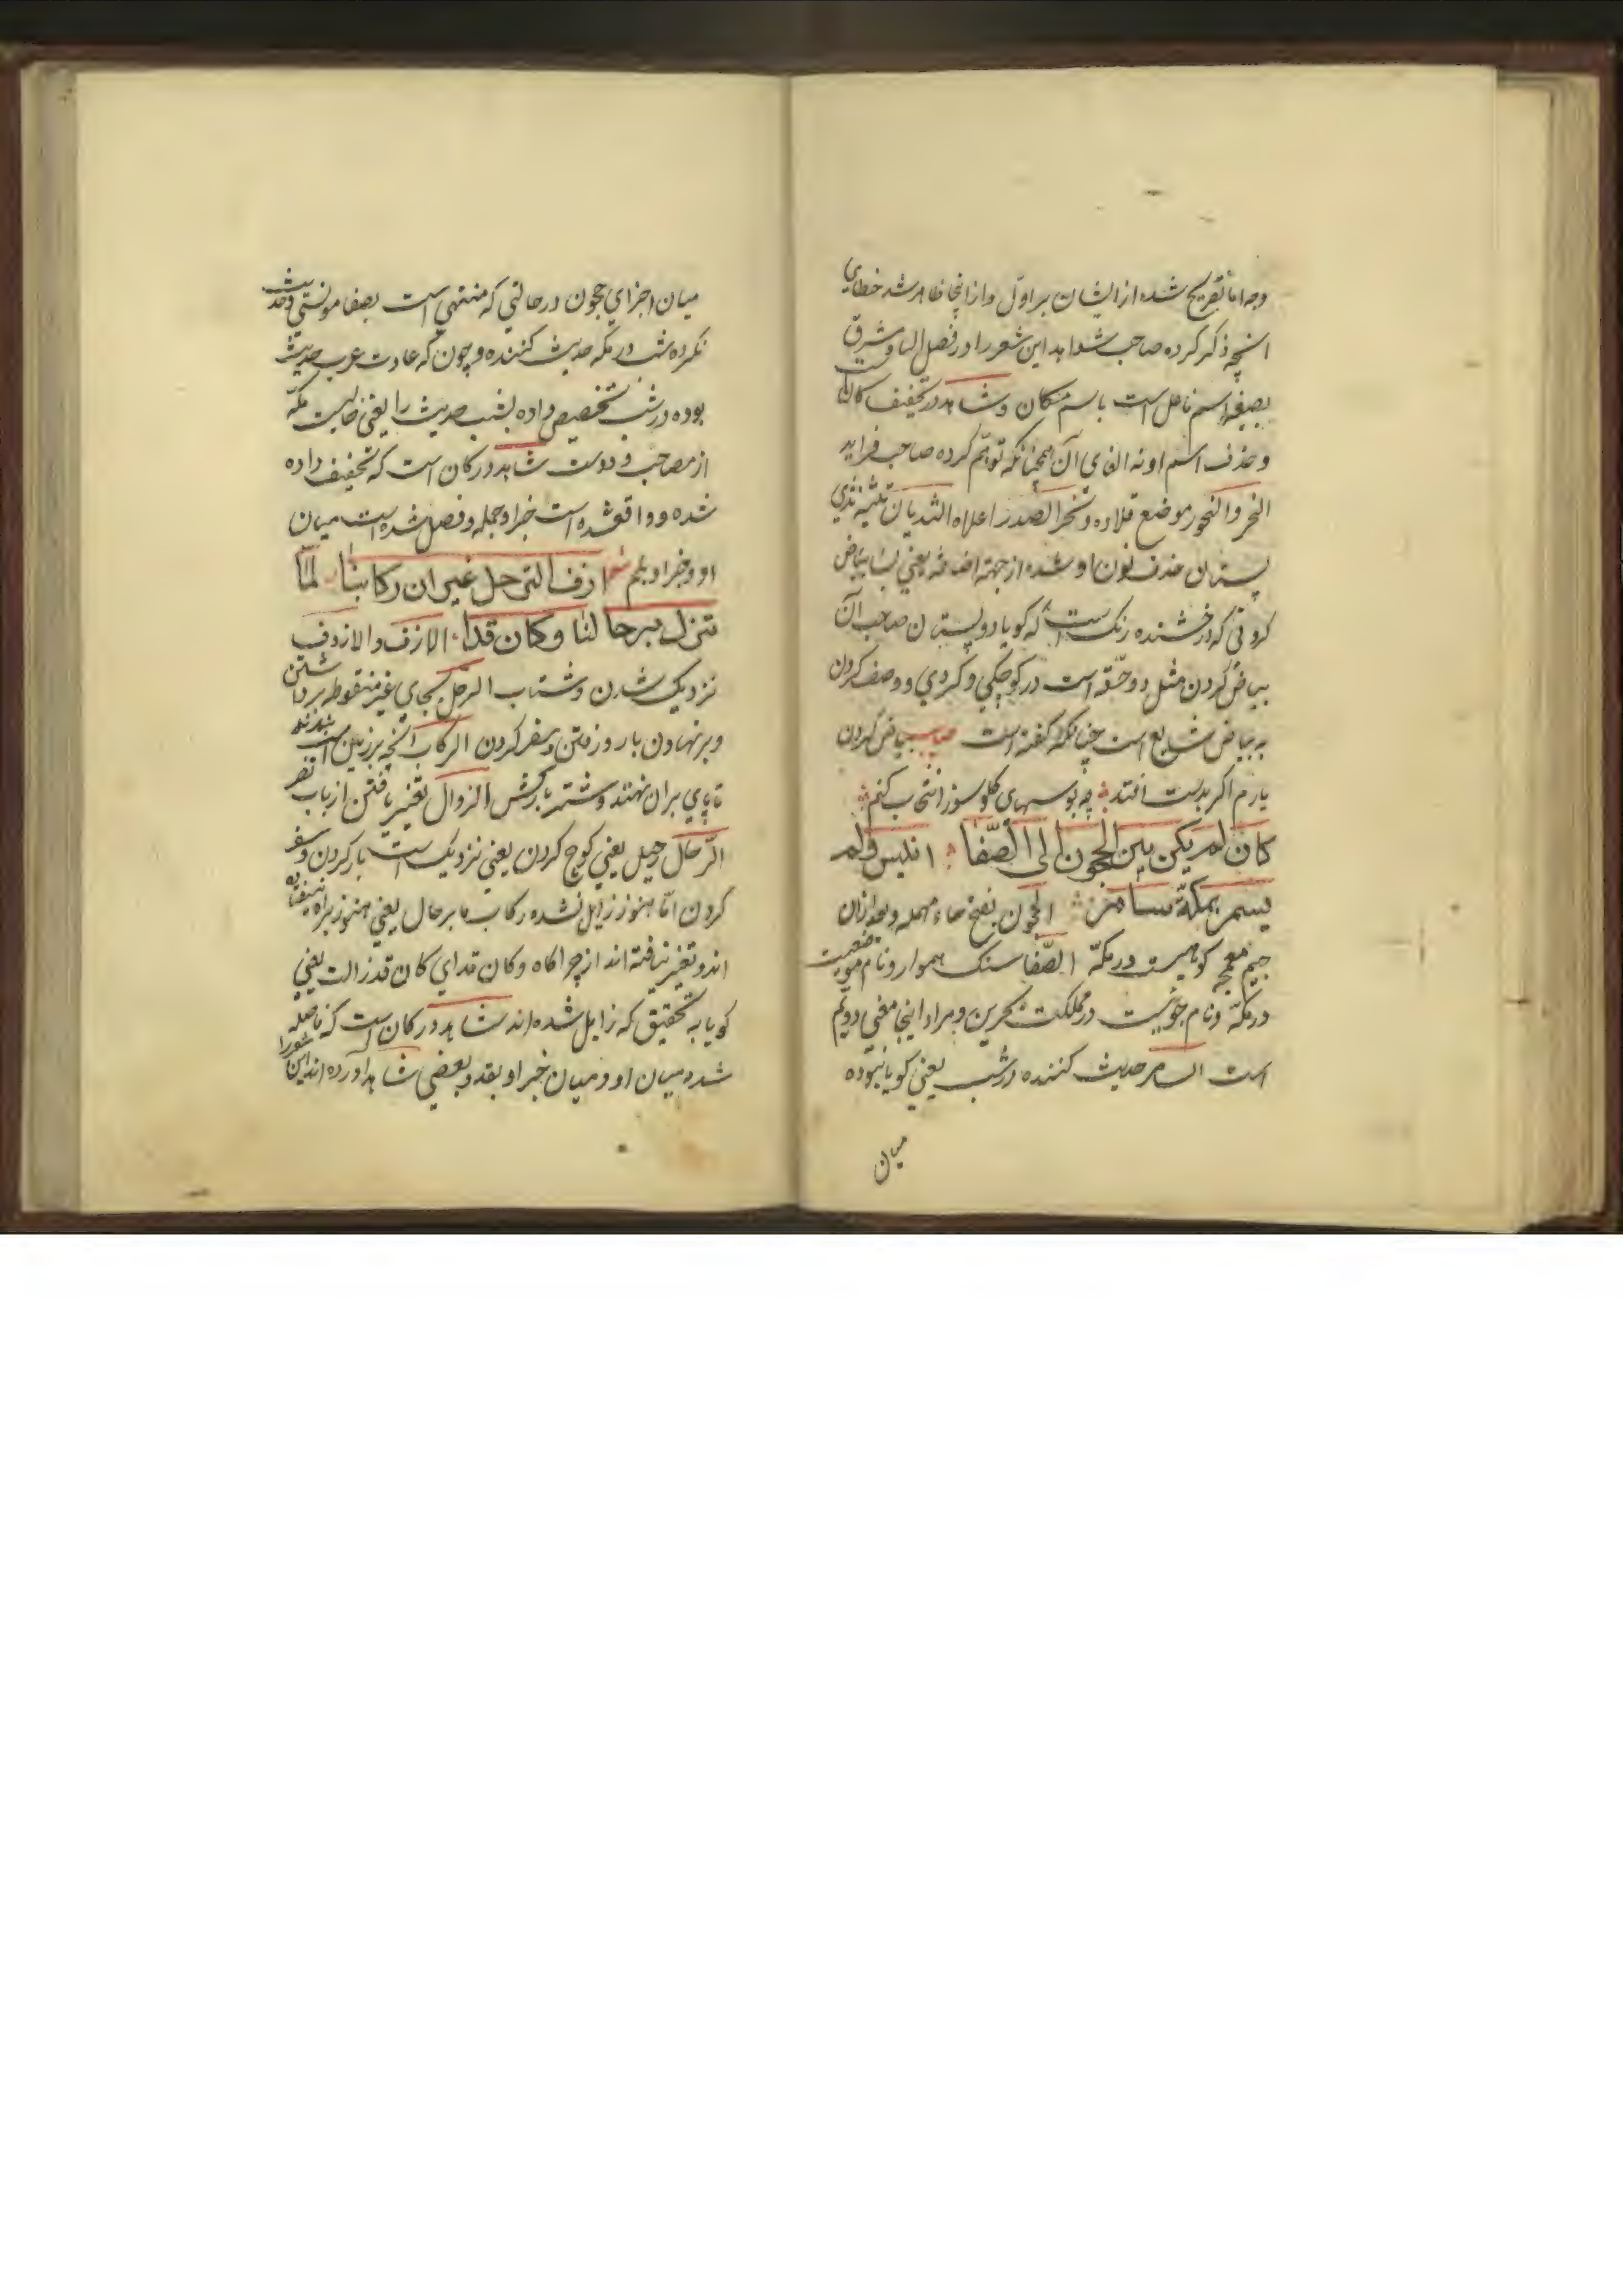 وجه اما تصریح شده از ایشان بر اول و از اینجا ظاهر شد خطای
انچه ذکر کرده صاحب شواهد این شعر را در فصل الباء و مشرق
بصیغه اسم فاعل است باسم مکان و شاهد در تخفیف کانست
و حذف اسم او نه الغای آن همچنانکه توهم کرده صاحب فراید
النحر والنحور موضع قلاده و نحر الصدر اعلاه الثدیان تثنیه ثدی
پستان حذف نون او شده از جهة اضافه یعنی بسا بیاض
کردنی که درخشنده رنگ است که کویا دو پستان صاحب آن
بیاض کردن مثل دو حقه است در کوچکی و کردی و وصف کردن
به بیاض شایع است چنانکه کفته است بیاض کردن
یارم اکر بدست افتد چه بوسهای کلوسوز انتخاب کنم
کان لم یکن بین الحجون الی الصفا انیس ولم
یسمر بمکة سامر الحجون بفتح حاء مهمله و بعد از آن
جیم معجمه کوهیست در مکه الصفا سنک هموار و نام موضعیست
در مکه و نام جوئیست در مملکت بحرین و مراد اینجا معنی دویم
است السامر حدیث کننده در شب یعنی کویا نبوده
میان
میان اجزای حجون در حالتی که منتهی است بصفا مونسی و حدیث
نکرده شب در مکه حدیث کننده و چون که عادت عرب حدیث
بوده در شب تخصیص داده بشب حدیث را یعنی خالیست مکه
از مصاحب و دوست شاهد در کان است که تخفیف داده
شده و واقع شده است خبر او جمله و فصل شده است میان
او و خبر او بلم شعر ازف الترحل غیر ان رکابنا لما
تنزل برحالنا وکان قدا الازف والازوف
نزدیک شدن و شتاب الرحل بحای غیر منقوطه برداشتن
و بر نهادن بار و رفتن و سفر کردن الرکاب آنچه بر زین است
تا پای بر ان نهند و شتر بارکش الزوال تغییر یافتن از باب نصر
الرحال رحیل یعنی کوچ کردن یعنی نزدیک است بار کردن و سفر
کردن اما هنوز زایل نشده رکاب ما بر حال یعنی هنوز براه نیفتاده
اند و تغییر نیافته اند از چراکاه وکان قد ای کان قد زالت یعنی
کویا به تحقیق که زایل شده اند شاهد در کان است که فاصله
شده میان او و میان خبر او بقد و بعضی شاهد آورده اند این شعر را